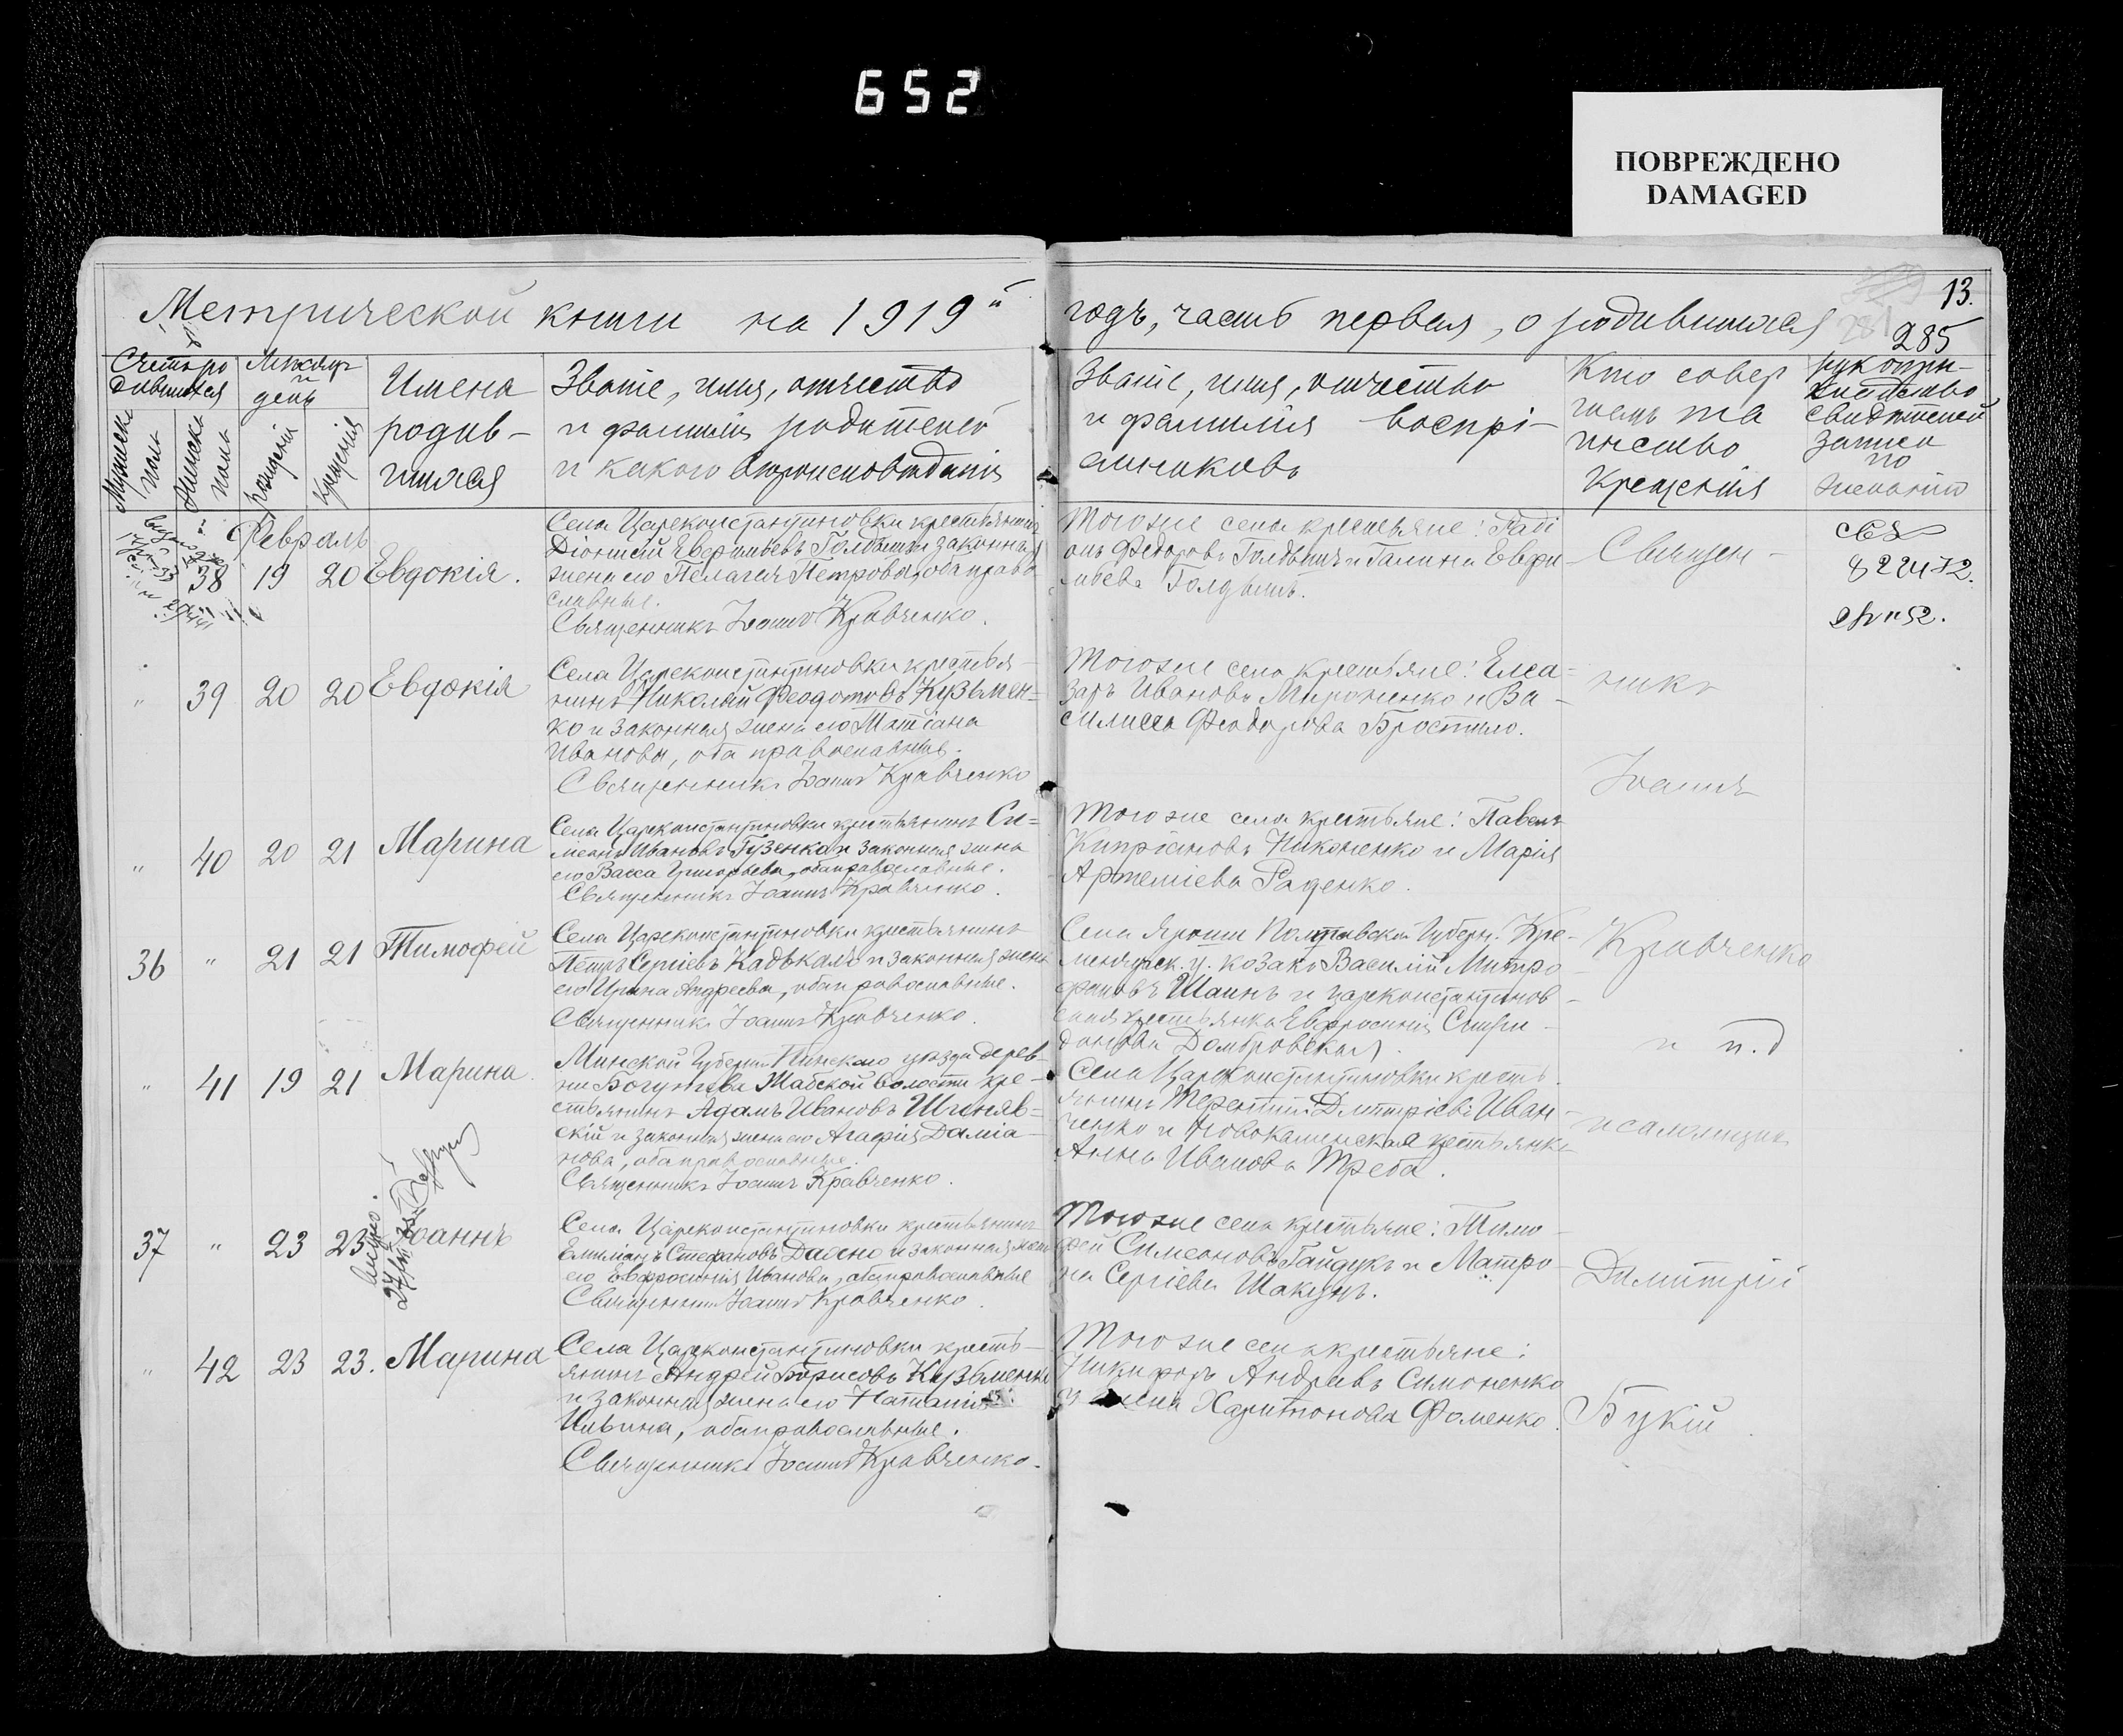 652
ПОВРЕЖДЕНО
DAMAGED
13.
285
Метрической книги на 1919й
годъ, часть первая, о родившихся
Счетъ ро
дившихся
Мужеск
полъ
Женск
полъ
Мѣсяцъ
и
день
рожденія
крещенія
Имена
родив-
шихся
Званіе, имя, отчество
и фамилія родителей
и какого вѣроисповѣданія
Званіе, имя, отчество
и фамилія воспрі-
емниковъ
Кто совер
шалъ та
инство
Крещенія
рукопри-
свидѣтелей
записи
по
желанію
Февраль
38 19 20 Евдокія.
Села Цареконстантиновки крестьянинъ
Діонисій Евфимьевъ Голдышъ и законная
жена его Пелагея Петрова, оба право
славные.
Священникъ Іоаннъ Кравченко.
Того же села крестьяне:
Федоровъ Голдышъ и Галина Евфи-
мьева Голдышъ.
Священ-
" 39 20 20 Евдокія
Села Цареконстантиновки крестья-
нинъ Николай Феодотовъ Кузьмен-
ко и законная жена его Татіана
Иванова, оба православные.
Священникъ Іоаннъ Кравченко
Того же села крестьяне: Елеа-
заръ Ивановъ Мироненко и Ва-
силисса Феодорова Бростило.
никъ
Іоаннъ
" 40 20 21 Марина
Села Цареконстантиновки крестьянинъ Си-
меонъ Ивановъ Гузенко и законная жена
его Васса Григорьева, оба православные.
Священникъ Іоаннъ Кравченко.
Того же села крестьяне: Павелъ
Кипріановъ Никоненко и Марія
Артемиева Раденко.
36 " 21 21 Тимофей
Села Цареконстантиновки крестьянинъ
Петръ Сергіевъ Кадькалъ и законная жена
его Ирина Андреева, оба православные.
Священникъ Іоаннъ Кравченко.
Села Яроши Полтавской Губерн. Кре-
менчугск. у. козакъ Василій Митро
фановъ Шаинъ и цареконстантинов-
ская крестьянка Евфросинія Спири-
донова Домбровская.
Кравченко
и п.д
" 41 19 21 Марина
Минской Губерніи Пинскаго уѣзда дерев-
ни волости кре-
стьянинъ Адамъ Ивановъ
скій и законная жена его Агафія Даміа-
нова, оба православные.
Священникъ Іоаннъ Кравченко.
Села Цареконстантиновки кресть
янинъ Терентій Дмитріевъ Иван-
ченко и Новокаменская крестьянка
Анна Иванова Треба.
псаломщика
37 " 23 23 Іоаннъ
Села Цареконстантиновки крестьянинъ
Емиліанъ Стефановъ и законная жена
его Евфросинія Иванова, оба православные
Священникъ Іоаннъ Кравченко.
Того же села крестьяне: Тимо-
фей Симеоновъ Гайдукъ и Матро-
на Сергіева Шакунъ.
Димитрій
" 42 23 23. Марина
Села Цареконстантиновки кресть-
янинъ Андрей Борисовъ Кузьменко
и законная жена его Наталія
Ильина, оба православные.
Священникъ Іоаннъ Кравченко.
Того же села крестьяне:
Никифоръ Андреевъ Симоненко
и Харитонова Фоменко.
Букій